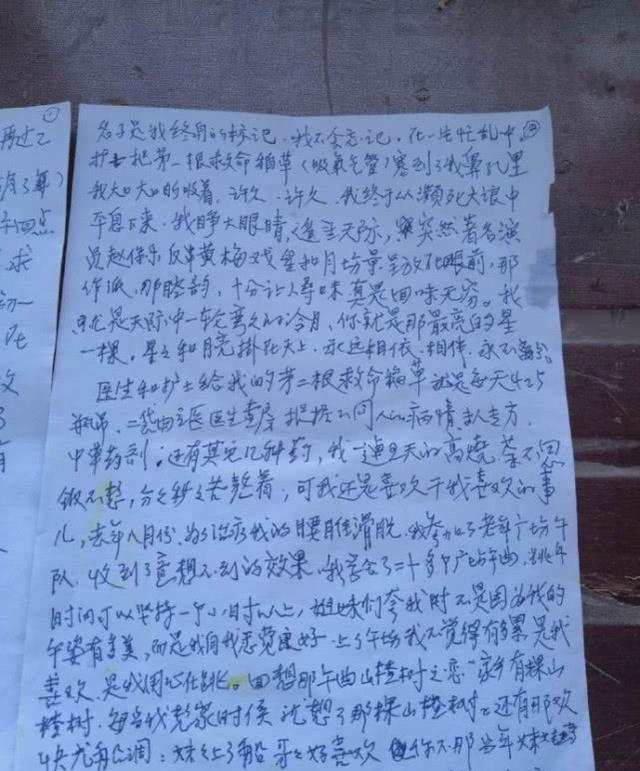 ①
再过2
有3年)
求
初一
在
名字是我终身的标记,我不会忘记。在一片忙乱中,③
护士把第一根救命稻草(吸氧气管)塞到了我鼻孔里
我大口大口的吸着,许久,许久,我终于从濒死大浪中
平息下来,我睁大眼睛,遥望天际,突然著名演
员赵保乐反串黄梅戏星和月场景呈放在眼前,那
作派,那腔韵,十分让人寻味真是回味无穷。我
就是天际中一轮弯弯的冷月,你就是那最亮的星
一棵。星星和月亮掛在天上,永远相依,相伴,永不
医生和护士给我的第二根救命稻草就是每天4、5
瓶吊,二袋由主医医生查房根据不同人的病情
中草药剂。还有其它几种药,我一连几天的高烧,茶不思
饭不想,分分秒秒苦熬着,可我还是喜欢干我喜欢的事
儿,去年八月份,为了治疗我的腰椎滑脱,我参加了老年广场午
队,收到了意想不到的效果,我学会了二十多个广场午曲,跳午
时间可以坚持一个小时以上,姐妹们夸我时不是因为我的
午姿有多美,而是我自我感觉良好,上了午场我不觉得有多累,是我
喜欢,是我用心在跳。回想那午曲山楂树之恋"家乡有棵山
楂树,每当我想家时侯就想了那棵山楂树"还有那欢
快尤 调:妹妹上了船哥哥好喜欢 你不那当年妹妹